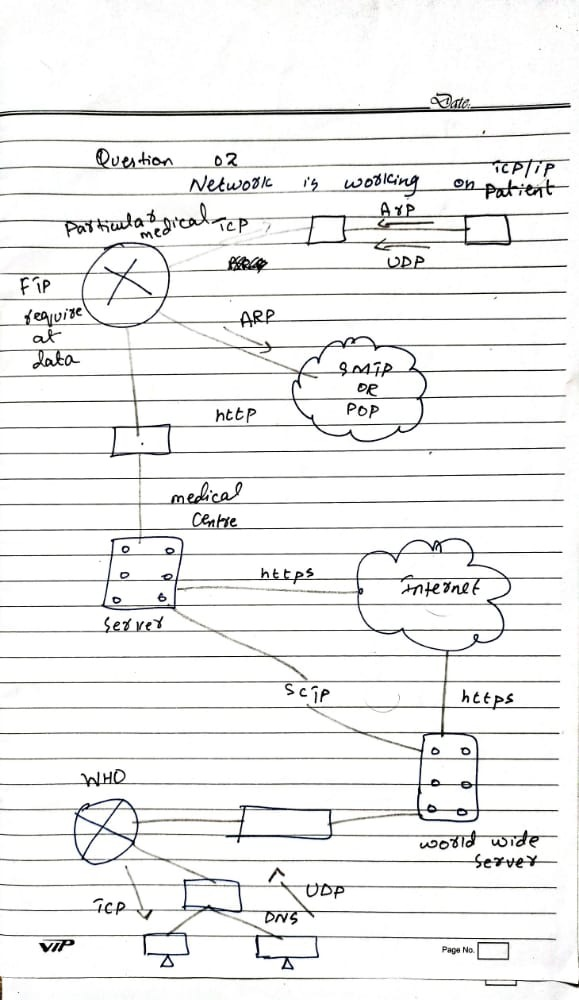 Date.
Question 02
Network is working on TCP/IP
Patient
Particular medical
TCP
ARP
UDP
FTP
require
at
data
ARP
SMTP
OR
POP
http
medical
Centre
Server
https
Internet
SCTP
https
WHO
world wide
Server
TCP
UDP
DNS
VIP
Page No.